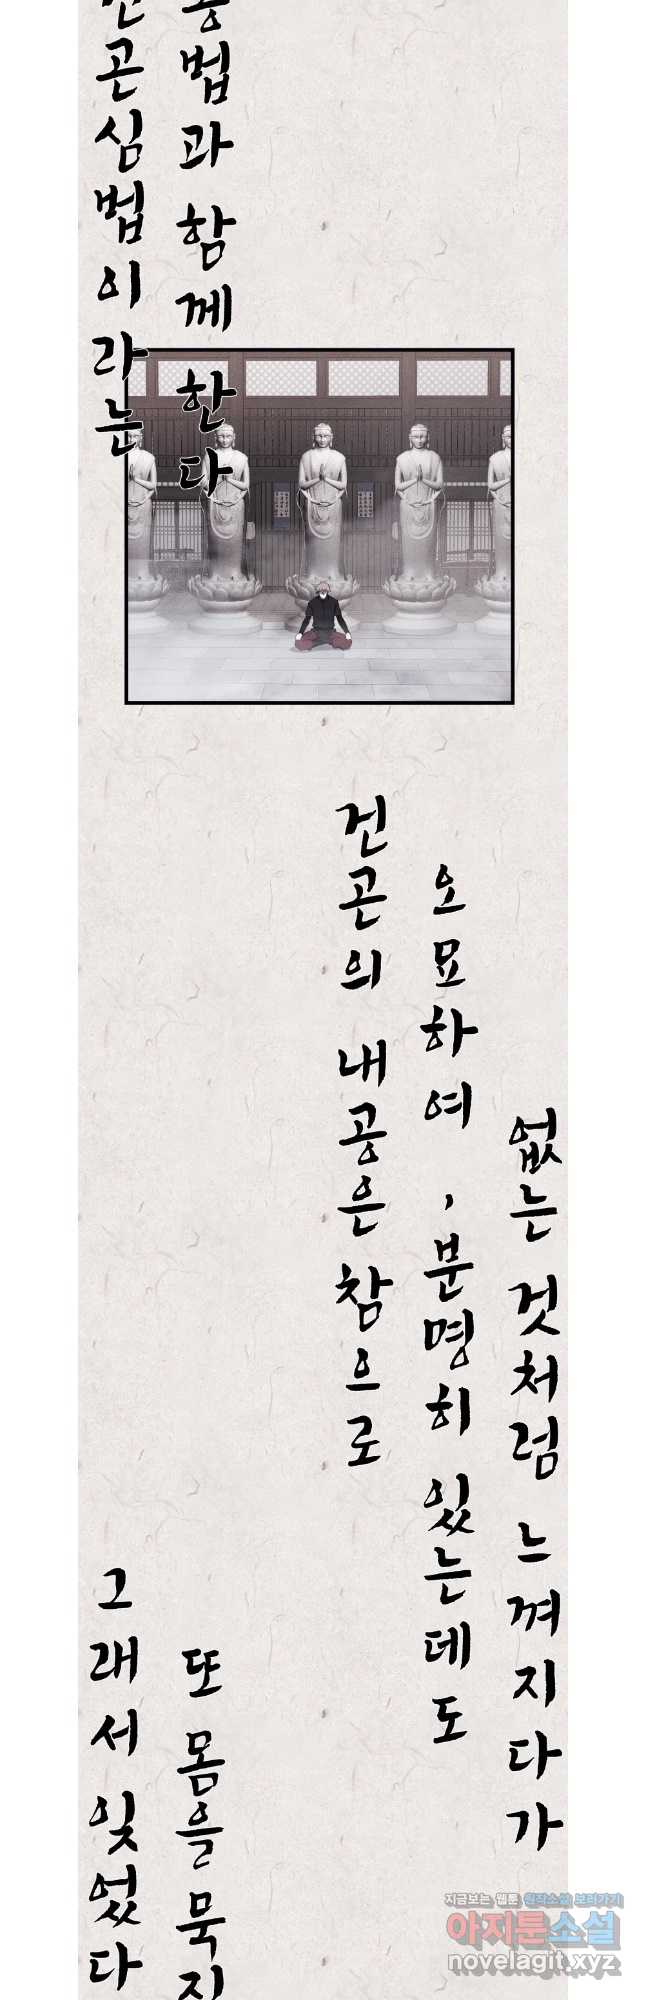 곤심법이라는
법과 함께 한다
건곤의 내공은 참으로
오묘하여, 분명히 있는데도
없는 것처럼 느껴지다가
그래서 잊었다
또 몸을 묵
지금보는 웹툰 원작소설 보러가기
아지툰소설
novelagit.xyz